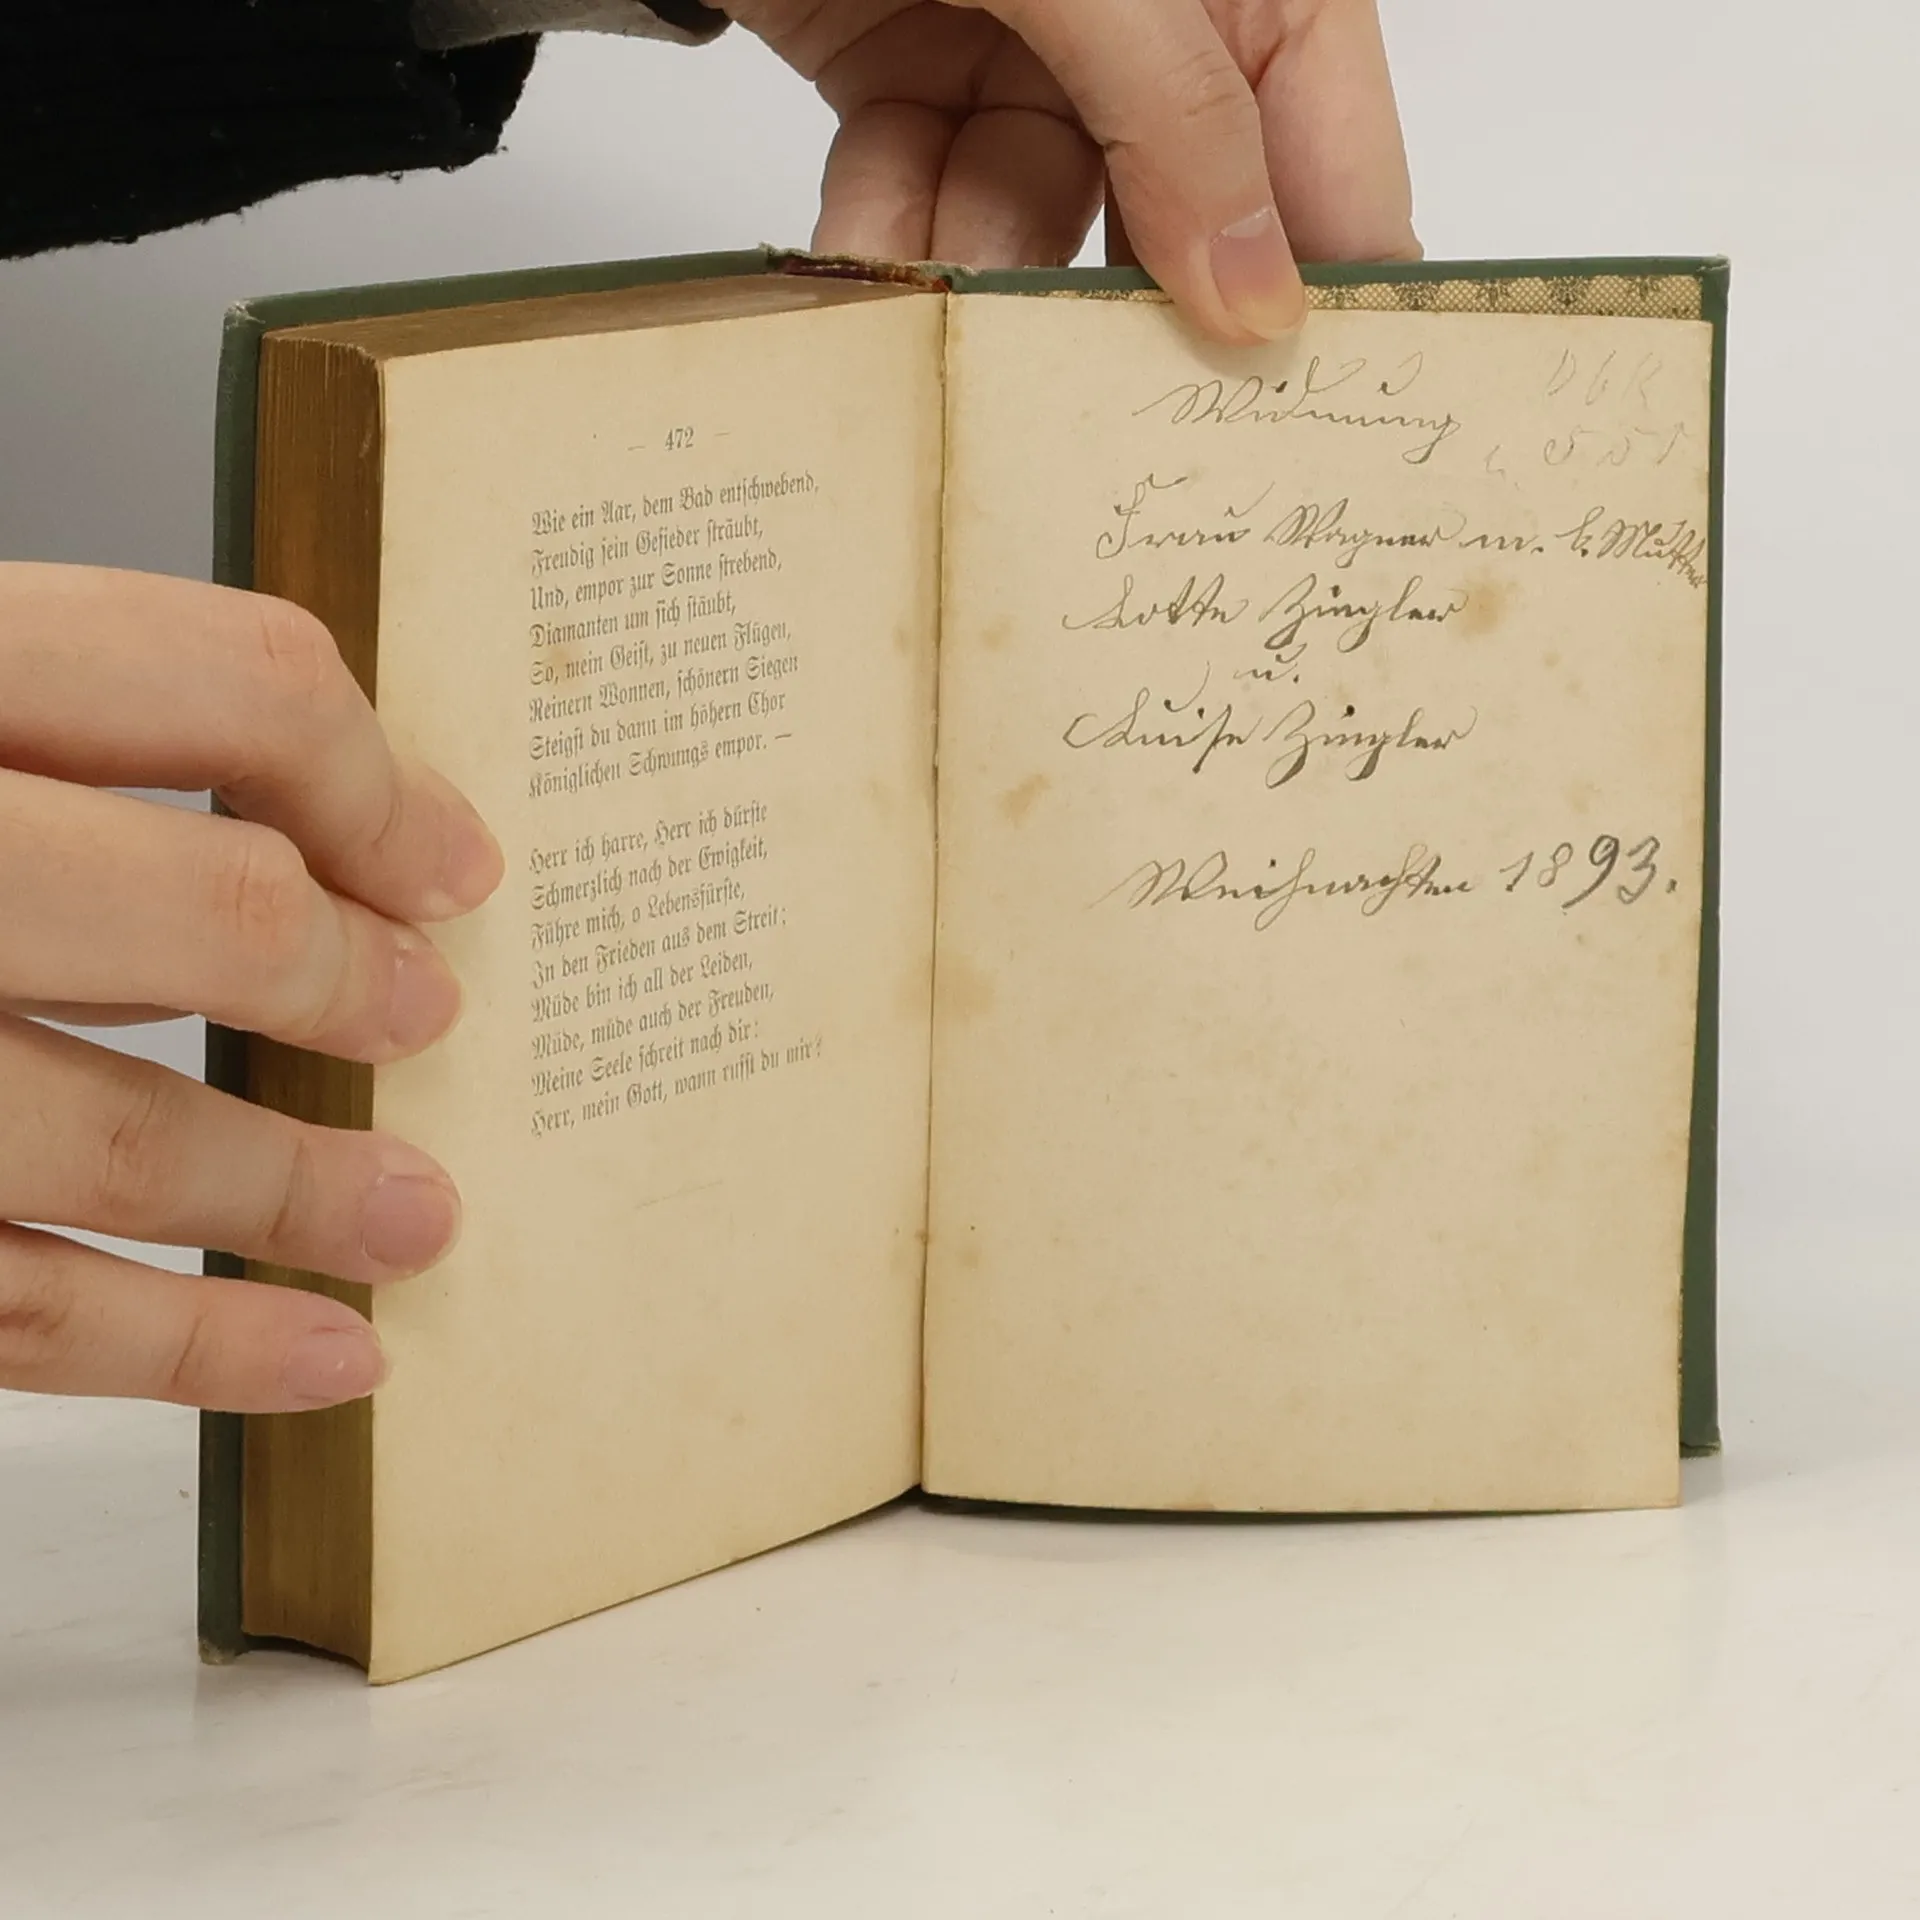 — 472 —
Wie ein Aar, dem Bad entschwebend,
Freudig sein Gefieder sträubt,
Und, empor zur Sonne strebend,
Diamanten um sich stäubt,
So, mein Geist, zu neuen Flügen,
Reinern Wonnen, schönern Siegen
Steigst du dann im höhern Chor
Königlichen Schwungs empor. —
Herr ich harre, Herr ich dürste
Schmerzlich nach der Ewigkeit,
Führe mich, o Lebensfürste,
In den Frieden aus dem Streit:
Müde bin ich all der Leiden,
Müde, müde auch der Freuden,
Meine Seele schreit nach dir:
Herr, mein Gott, wann rufst du mir?
Widmung
Frau Wagner m. l. Mutter
Lotte Ziegler
u.
Luise Ziegler
Weihnachten 1893.